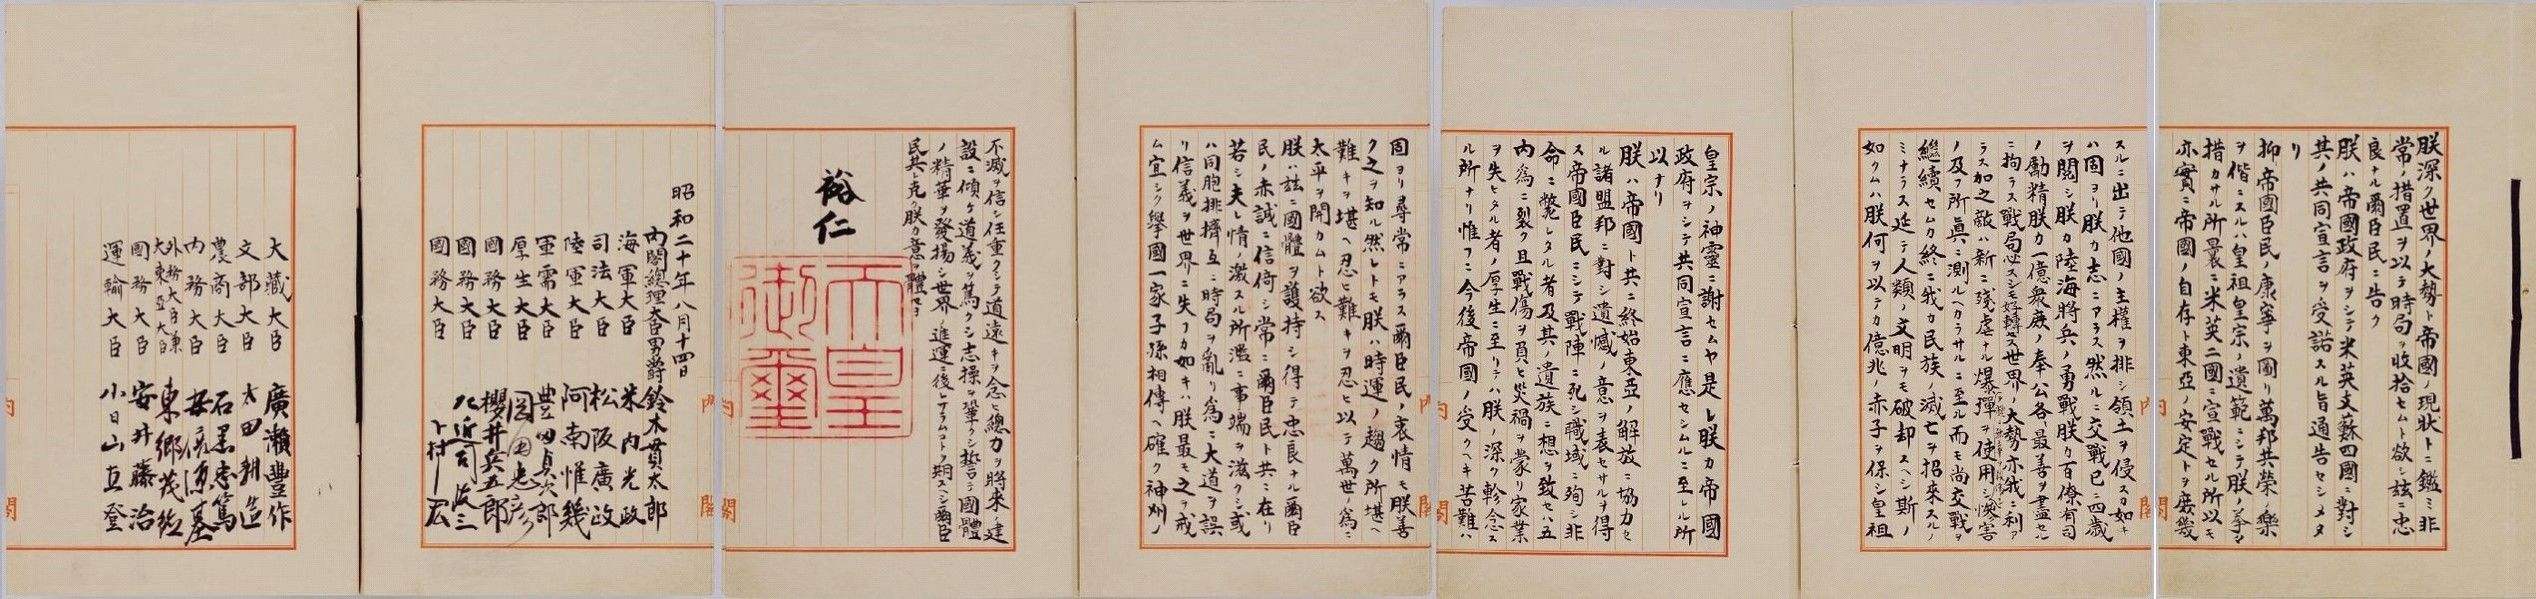 朕深ク世界ノ大勢ト帝國ノ現狀トニ鑑ミ非
常ノ措置ヲ以テ時局ヲ收拾セムト欲シ茲ニ忠
良ナル爾臣民ニ告ク
朕ハ帝國政府ヲシテ米英支蘇四國ニ對シ
其ノ共同宣言ヲ受諾スル旨通告セシメタ
リ
抑帝國臣民ノ康寧ヲ圖リ萬邦共榮ノ樂
ヲ偕ニスルハ皇祖皇宗ノ遺範ニシテ朕ノ拳々
措カサル所曩ニ米英二國ニ宣戰セル所以モ
亦實ニ帝國ノ自存ト東亞ノ安定トヲ庶幾
内閣
スルニ出テ他國ノ主權ヲ排シ領土ヲ侵スカ如キ
ハ固ヨリ朕カ志ニアラス然ルニ交戰已ニ四歲
ヲ閱シ朕カ陸海將兵ノ勇戰朕カ百僚有司
ノ勵精朕カ一億衆庶ノ奉公各〻最善ヲ盡セル
ニ拘ラス戰局必スシモ好轉セス世界ノ大勢亦我ニ利ア
ラス加之敵ハ新ニ殘虐ナル爆彈ヲ使用シ慘害
ノ及フ所眞ニ測ルヘカラサルニ至ル而モ尚交戰ヲ
繼續セムカ終ニ我カ民族ノ滅亡ヲ招來スルノ
ミナラス延テ人類ノ文明ヲモ破却スヘシ斯ノ
如クムハ朕何ヲ以テカ億兆ノ赤子ヲ保シ皇祖
皇宗ノ神靈ニ謝セムヤ是レ朕カ帝國
政府ヲシテ共同宣言ニ應セシムルニ至レル所
以ナリ
朕ハ帝國ト共ニ終始東亞ノ解放ニ協力セ
ル諸盟邦ニ對シ遺憾ノ意ヲ表セサルヲ得
ス帝國臣民ニシテ戰陣ニ死シ職域ニ殉シ非
命ニ斃レタル者及其ノ遺族ニ想ヲ致セハ五
内爲ニ裂ク且戰傷ヲ負ヒ災禍ヲ蒙リ家業
ヲ失ヒタル者ノ厚生ニ至リテハ朕ノ深ク軫念ス
ル所ナリ惟フニ今後帝國ノ受クヘキ苦難ハ
内閣
固ヨリ尋常ニアラス爾臣民ノ衷情モ朕善
ク之ヲ知ル然レトモ朕ハ時運ノ趨ク所堪ヘ
難キヲ堪ヘ忍ヒ難キヲ忍ヒ以テ萬世ノ爲ニ
太平ヲ開カムト欲ス
朕ハ茲ニ國體ヲ護持シ得テ忠良ナル爾臣
民ノ赤誠ニ信倚シ常ニ爾臣民ト共ニ在リ
若シ夫レ情ノ激スル所濫ニ事端ヲ滋クシ或
ハ同胞排擠互ニ時局ヲ亂リ爲ニ大道ヲ誤
リ信義ヲ世界ニ失フカ如キハ朕最モ之ヲ戒
ム宜シク擧國一家子孫相傳ヘ確ク神州ノ
不滅ヲ信シ任重クシテ道遠キヲ念ヒ總力ヲ將來ノ建
設ニ傾ケ道義ヲ篤クシ志操ヲ鞏クシ誓テ國體
ノ精華ヲ發揚シ世界ノ進運ニ後レサラムコトヲ期スヘシ爾臣
民其レ克ク朕カ意ヲ體セヨ
裕仁
天皇
御璽
内閣
昭和二十年八月十四日
内閣總理大臣男爵 鈴木貫太郎
海軍大臣 米内光政
司法大臣 松阪廣政
陸軍大臣 阿南惟幾
軍需大臣 豊田貞次郎
厚生大臣 岡田忠彦
國務大臣 櫻井兵五郎
國務大臣 左近司政三
國務大臣 下村宏
大藏大臣 廣瀨豐作
文部大臣 太田耕造
農商大臣 石黒忠篤
内務大臣 安倍源基
外務大臣兼
大東亞大臣 東郷茂德
國務大臣 安井藤治
運輸大臣 小日山直登
内閣